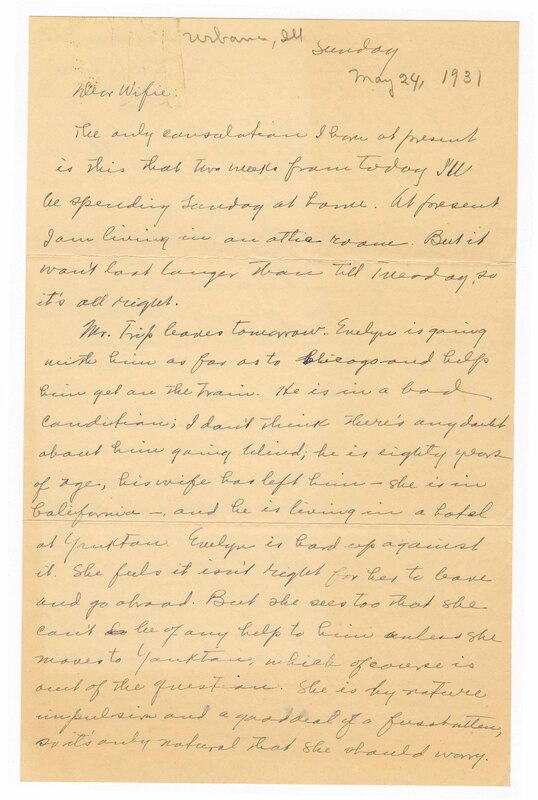 Urbana, Ill
Sunday
May 24, 1931
Dear Wifie:
The only consolation I have at present
is this that two weeks from today I'll
be spending Sunday at home. At present
I am living in an attic room. But it
won't last longer than till Tuesday, so
it's all right.
Mr. Tripp leaves tomorrow. Evelyn is going
with him as far as to Chicago and help
him get on the train. He is in a bad
condition; I don't think there's any doubt
about him going blind; he is eighty years
of age, his wife has left him – she is in
California –, and he is living in a hotel
at Yankton. Evelyn is hard up against
it. She feels it isn't right for her to leave
and go abroad. But she sees too that she
can't be of any help to him unless she
moves to Yankton, which of course is
out of the question. She is by nature
impulsive and a good deal of a
so it's only natural that she should worry.